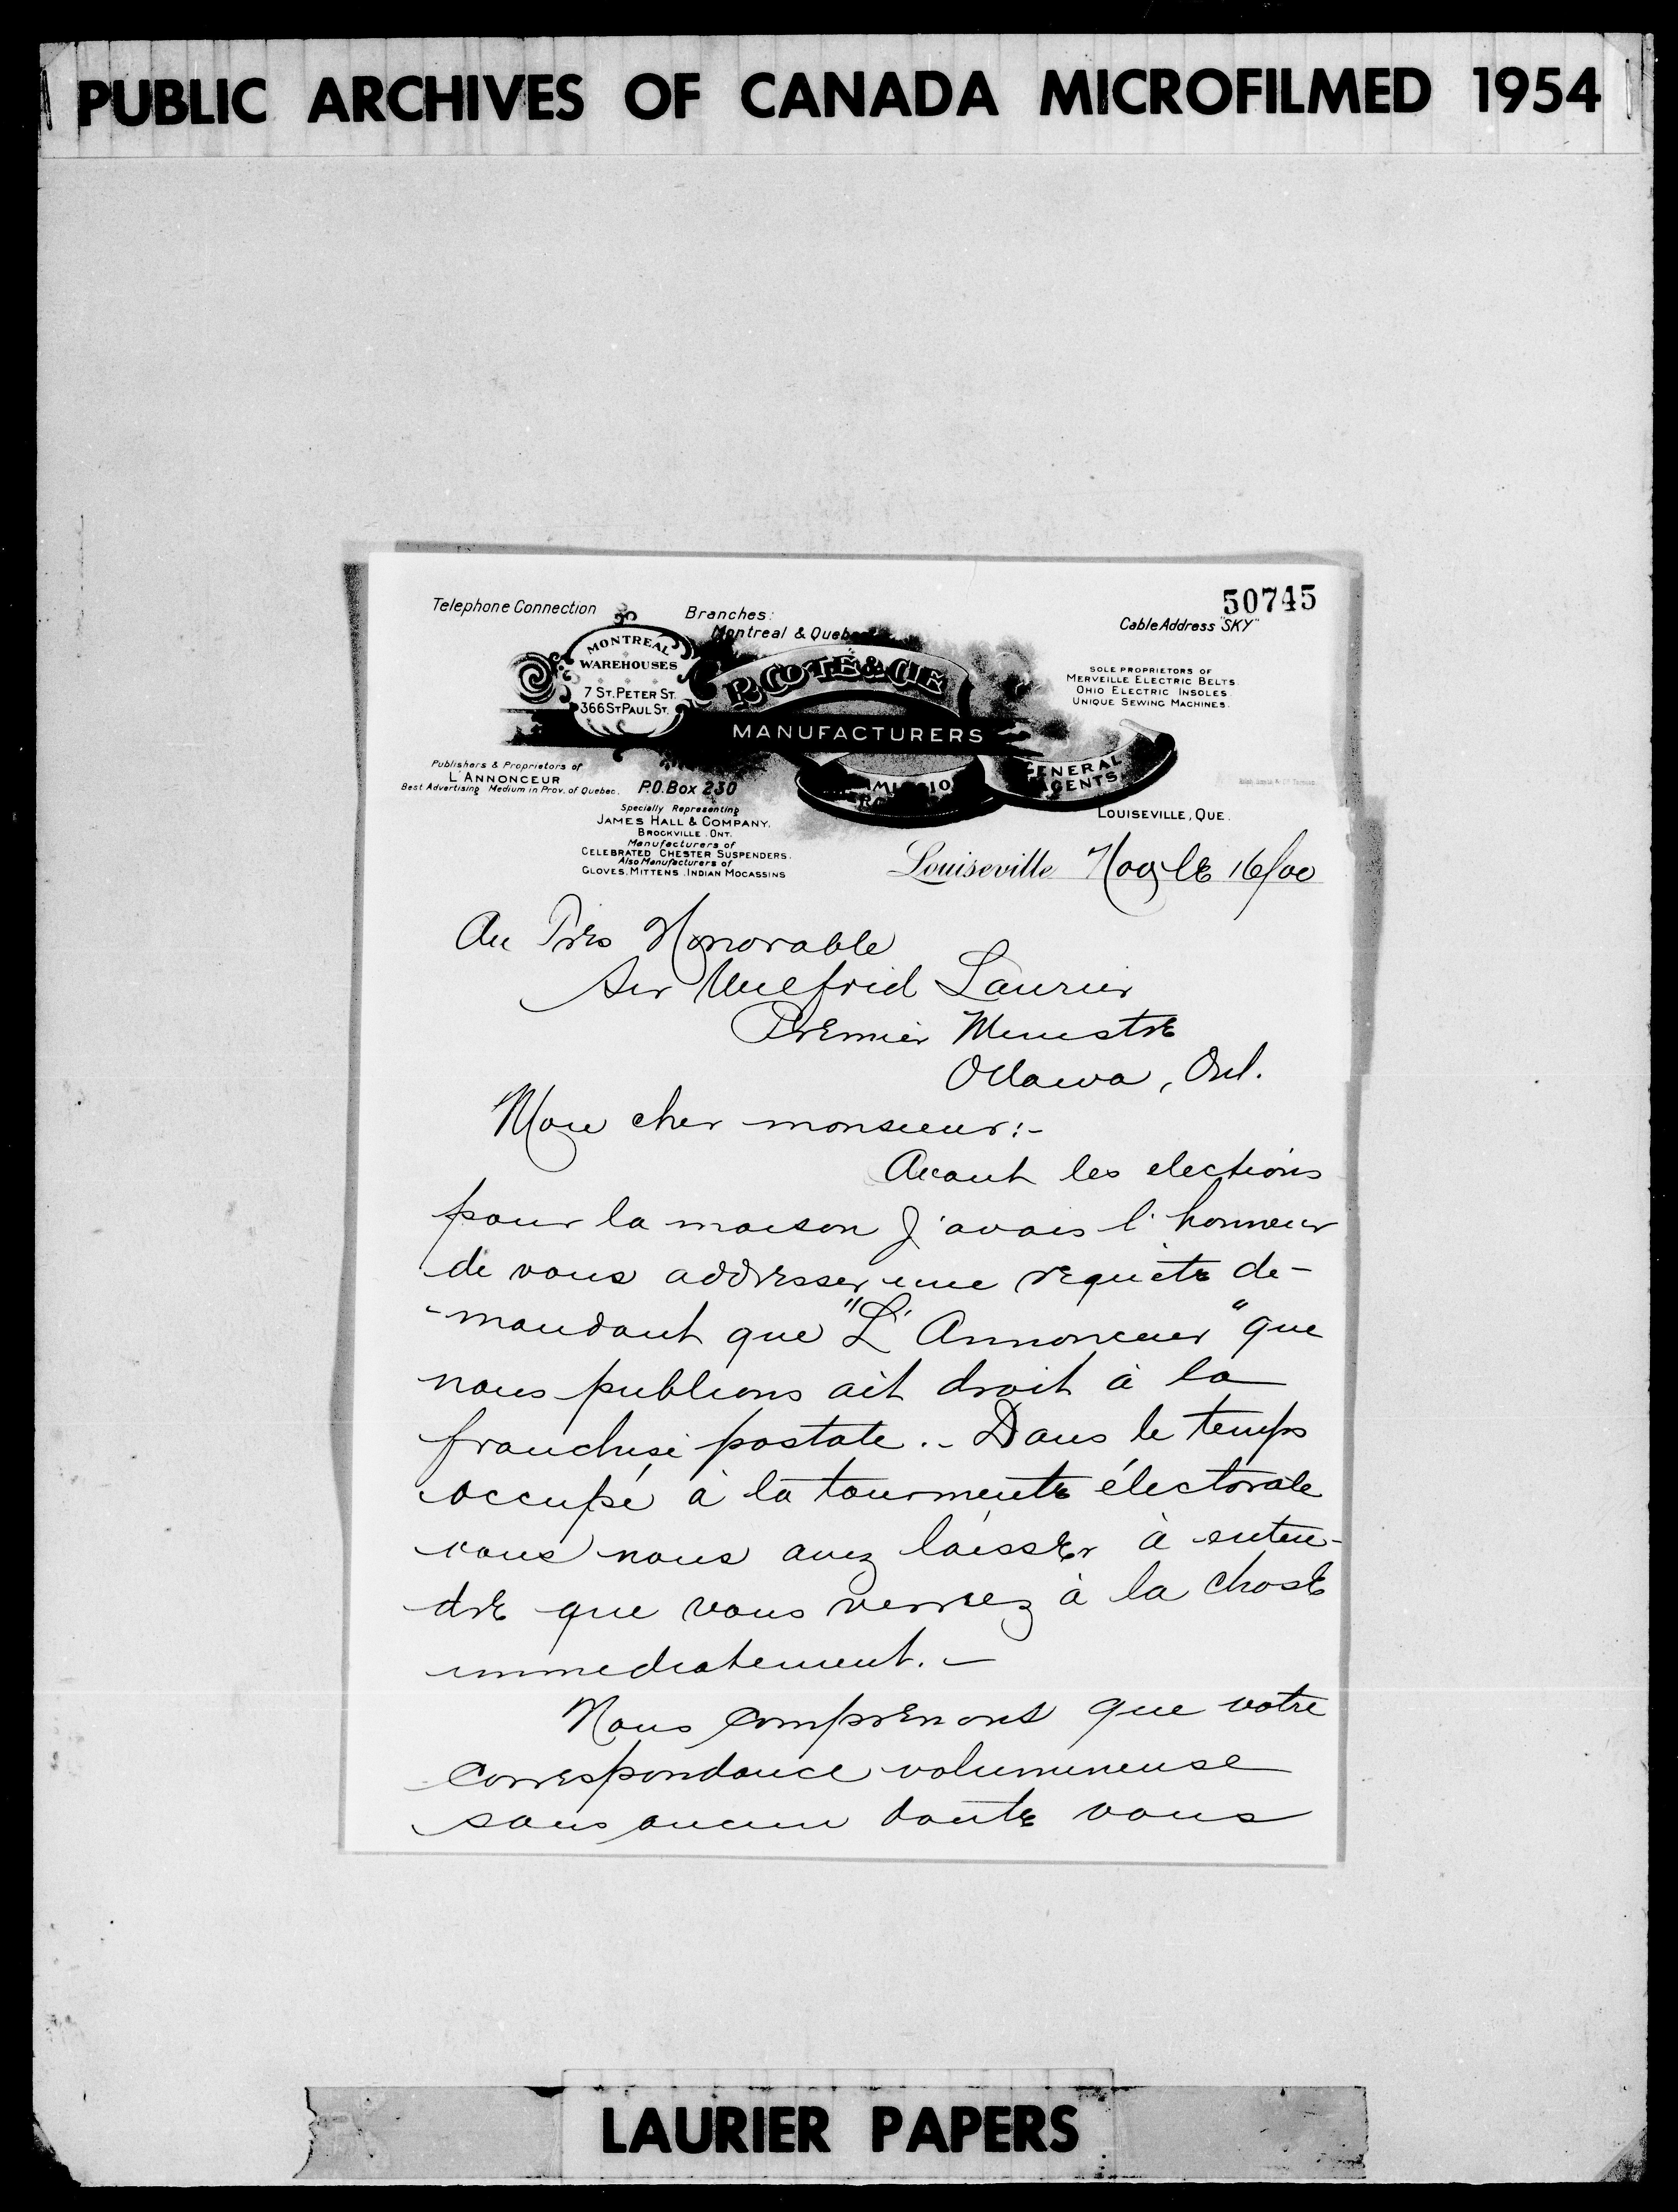 PUBLIC ARCHIVES OF CANADA MICROFILMED 1954
50745
Telephone Connection
Branches:
Montreal & Quebec
Cable Address "SKY"
MONTREAL
WAREHOUSES
7 ST. PETER ST.
366 ST PAUL ST.
P. COTE & CIE
MANUFACTURERS
GENERAL
AGENTS
SOLE PROPRIETORS OF
MERVEILLE ELECTRIC BELTS.
OHIO ELECTRIC INSOLES.
UNIQUE SEWING MACHINES.
Publishers & Proprietors of
L'ANNONCEUR
Best Advertising Medium in Prov. of Quebec.
P.O. Box 230
Specially Representing
JAMES HALL & COMPANY,
BROCKVILLE. ONT.
Manufacturers of
CELEBRATED CHESTER SUSPENDERS.
Also Manufacturers of
GLOVES, MITTENS, INDIAN MOCASSINS
LOUISEVILLE, QUE.
Louiseville Nov le 16/00
Au Très Honorable
Sir Wilfrid Laurier
Premier Ministre
Ottawa, Ont.
Mon cher monsieur:-
Avant les elections
pour la maison J'avais l'honneur
de vous addresser une requète de-
-mandant que "L'Annonceur" que
nous publions ait droit à la
franchise postale.- Dans le temps
occupé à la tourmente électorale
vous nous avez laisser à enten-
dre que vous verriez à la chose
immediatement.-
Nous comprenons que votre
correspondance volumineuse
sans aucun doute vous
LAURIER PAPERS